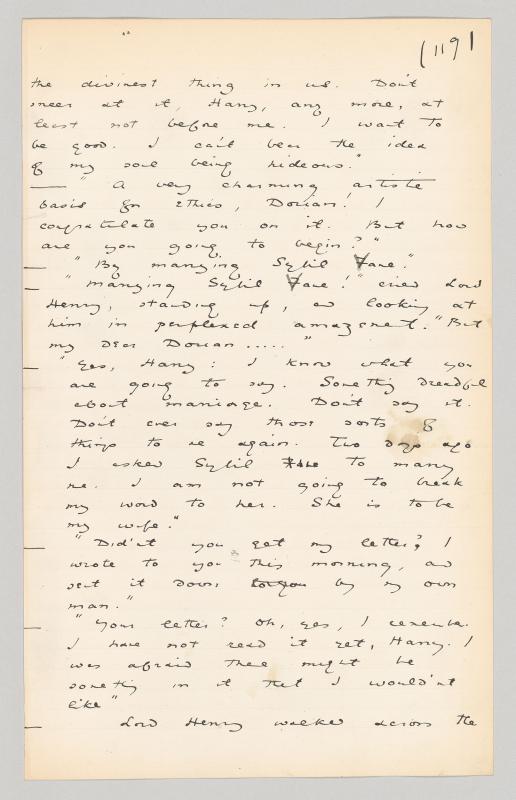 (119)
the divinest thing in us. Don't
sneer at it, Harry, any more, at
least not before me. I want to
be good. I can't bear the idea
of my soul being hideous."
— "A very charming artistic
basis for Ethics, Dorian! I
congratulate you on it. But how
are you going to begin?"
— "By marrying Sybil Vane."
— "Marrying Sybil Vane!" cried Lord
Henry, standing up, and looking at
him in perplexed amazement. "But
my dear Dorian ....."
— "Yes, Harry: I know what you
are going to say. Something dreadful
about marriage. Don't say it.
Don't ever say those sorts of
things to me again. Two days ago
I asked Sybil to marry
me. I am not going to break
my word to her. She is to be
my wife."
— "Did'nt you get my letter? I
wrote to you this morning, and
sent it down to you by my own
man."
— "Your letter? Oh, yes, I remember.
I have not read it yet, Harry. I
was afraid there might be
something in it that I would'nt
like"
— Lord Henry walked across the